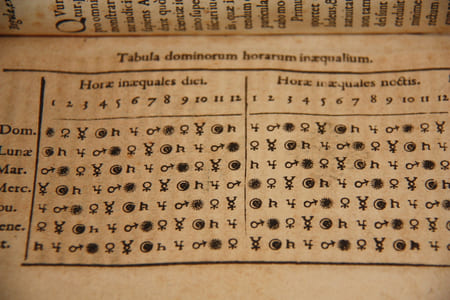 Primu
Tabula dominorum horarum inæqualium.
Horæ inæquales diei. Horæ inæquales noctis.
1 2 3 4 5 6 7 8 9 10 11 12 1 2 3 4 5 6 7 8 9 10 11 12
Dom. ☉ ♀ ☿ ☾ ♄ ♃ ♂ ☉ ♀ ☿ ☾ ♄ ♃ ♂ ☉ ♀ ☿ ☾ ♄ ♃ ♂ ☉ ♀ ☿
Lunæ ☾ ♄ ♃ ♂ ☉ ♀ ☿ ☾ ♄ ♃ ♂ ☉ ♀ ☿ ☾ ♄ ♃ ♂ ☉ ♀ ☿ ☾ ♄ ♃
Mar. ♂ ☉ ♀ ☿ ☾ ♄ ♃ ♂ ☉ ♀ ☿ ☾ ♄ ♃ ♂ ☉ ♀ ☿ ☾ ♄ ♃ ♂ ☉ ♀
Merc. ☿ ☾ ♄ ♃ ♂ ☉ ♀ ☿ ☾ ♄ ♃ ♂ ☉ ♀ ☿ ☾ ♄ ♃ ♂ ☉ ♀ ☿ ☾ ♄
ou. ♃ ♂ ☉ ♀ ☿ ☾ ♄ ♃ ♂ ☉ ♀ ☿ ☾ ♄ ♃ ♂ ☉ ♀ ☿ ☾ ♄ ♃ ♂ ☉
ene. ♀ ☿ ☾ ♄ ♃ ♂ ☉ ♀ ☿ ☾ ♄ ♃ ♂ ☉ ♀ ☿ ☾ ♄ ♃ ♂ ☉ ♀ ☿ ☾
t. ♄ ♃ ♂ ☉ ♀ ☿ ☾ ♄ ♃ ♂ ☉ ♀ ☿ ☾ ♄ ♃ ♂ ☉ ♀ ☿ ☾ ♄ ♃ ♂